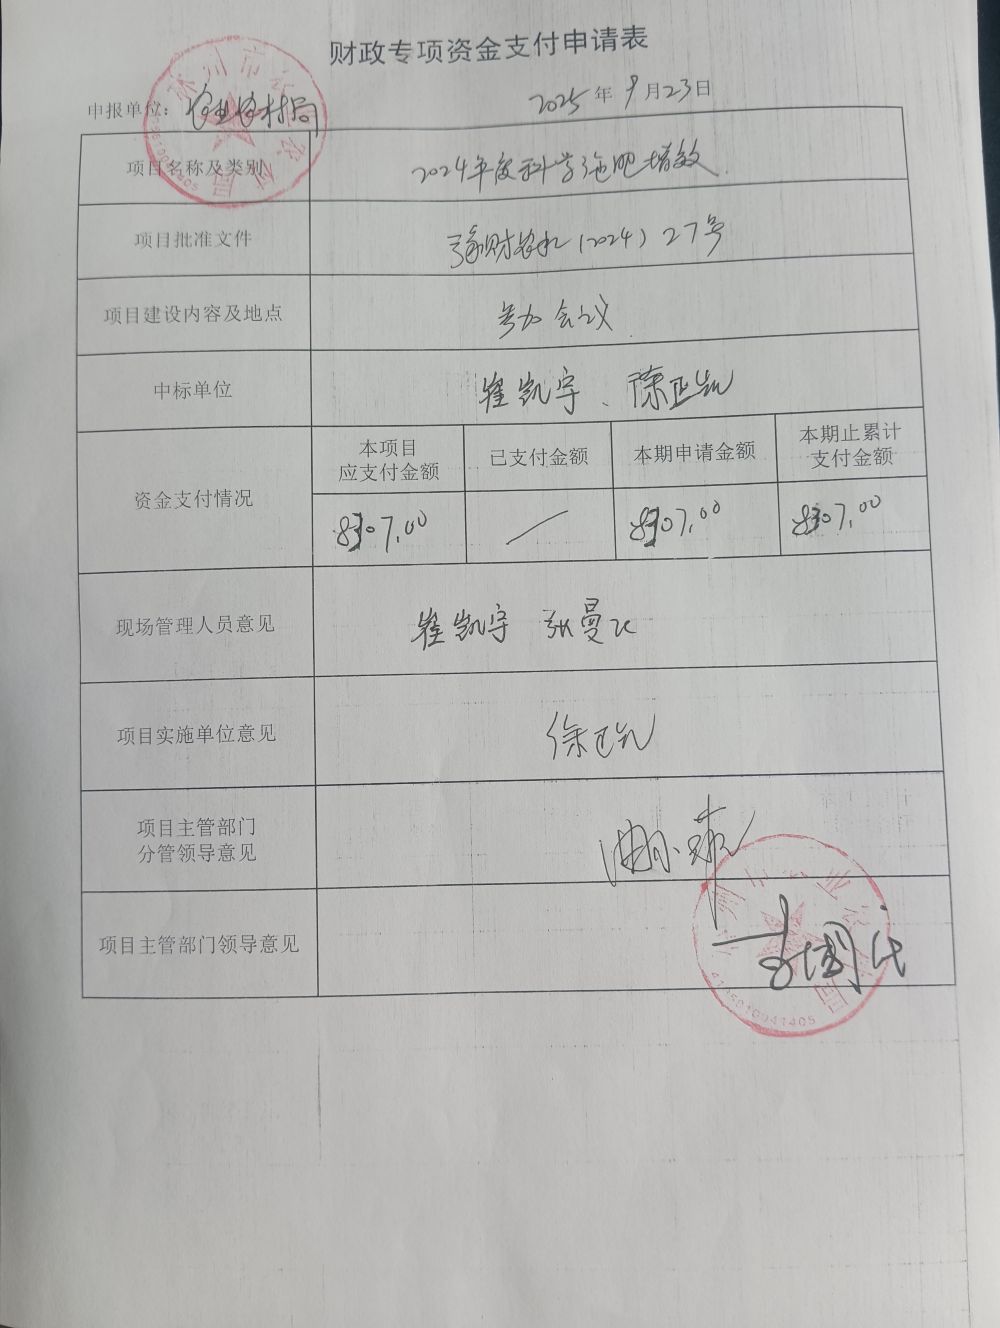 财政专项资金支付申请表
申报单位：农业农村局 2025年9月23日
项目名称及类别 2024年度科学施肥增效
项目批准文件 豫财农水（2024）27号
项目建设内容及地点 参加会议
中标单位 崔凯宇、徐正凯
资金支付情况
本项目 应支付金额
已支付金额
本期申请金额
本期止累计 支付金额
8307.00 8307.00 8307.00
现场管理人员意见 崔凯宇 张曼
项目实施单位意见 徐正凯
项目主管部门
分管领导意见
项目主管部门领导意见
林州市农业农村局
4105810041405